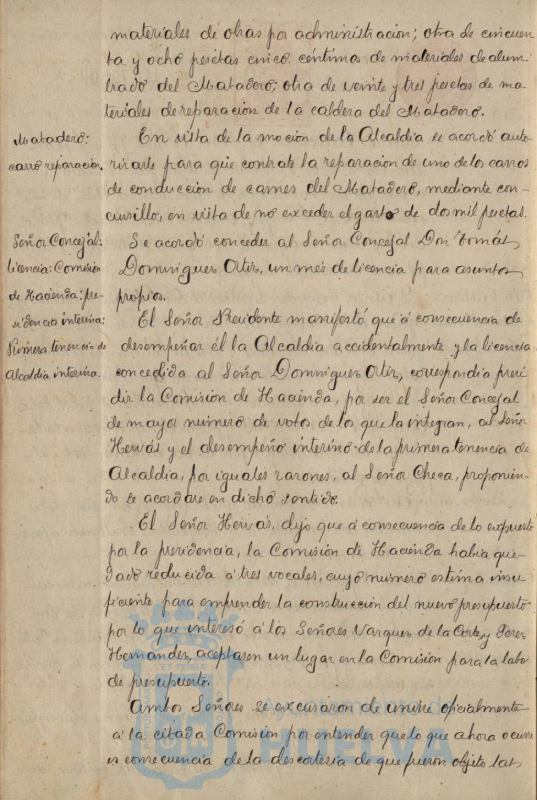 materiales de obras por administracion; otra de cincuen
ta y ocho pesetas cinco céntimos de materiales de alum
brado del Matadero; otra de veinte y tres pesetas de ma-
teriales de reparacion de la caldera del Matadero.
Matadero:
carro reparación.
En vista de la mocion de la Alcaldia se acordó auto-
rizarle para que contrate la reparacion de uno de los carros
de conduccion de carnes del Matadero, mediante con-
cursillo, en vista de no exceder el gasto de dos mil pesetas.
Señor Concejal:
licencia: Comision
de Hacienda: pre-
sidencia interina:
Primera tenencia de
Alcaldia interina.
Se acordó conceder al Señor Concejal Don Tomás
Dominguez Ortiz, un mes de licencia para asuntos
propios.
El Señor Presidente manifestó que á consecuencia de
desempeñar él la Alcaldia accidentalmente y la licencia
concedida al Señor Dominguez Ortiz, correspondia presi
dir la Comision de Hacienda, por ser el Señor Concejal
de mayor numero de votos de los que la integran, al Señor
Hervás y el desempeño interino de la primera tenencia de
Alcaldia, por iguales razones, al Señor Checa, proponien-
do se acordase en dicho sentido.
El Señor Hervás, dijo que á consecuencia de lo expuesto
por la presidencia, la Comision de Hacienda habia que-
dado reducida á tres vocales, cuyo numero estima insu
ficiente para emprender la construccion del nuevo presupuesto
por lo que interesó á los Señores Vazquez de la Corte y Perez
Hernandez, aceptasen un lugar en la Comision para la labor
de presupuesto.
Ambos Señores se excusaron de unirse oficialmente
á la citada Comision por entender que lo que ahora ocurre
es consecuencia de la descortesia de que fueron objeto las
Ayuntamiento de
HUELVA